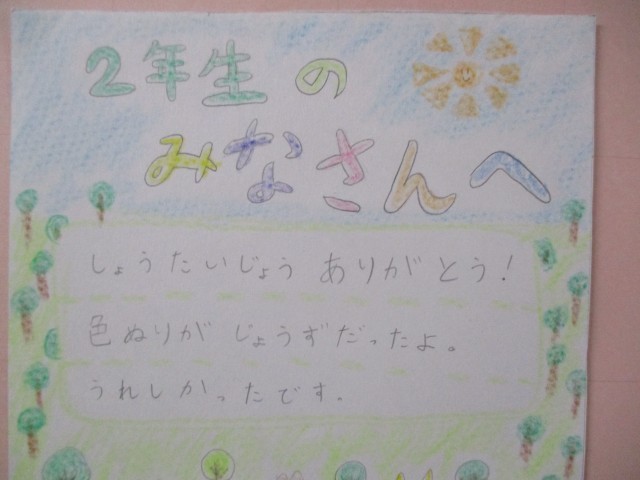 2年生の
みなさんへ
しょうたいじょう ありがとう!
色ぬりが じょうずだったよ。
うれしかったです.